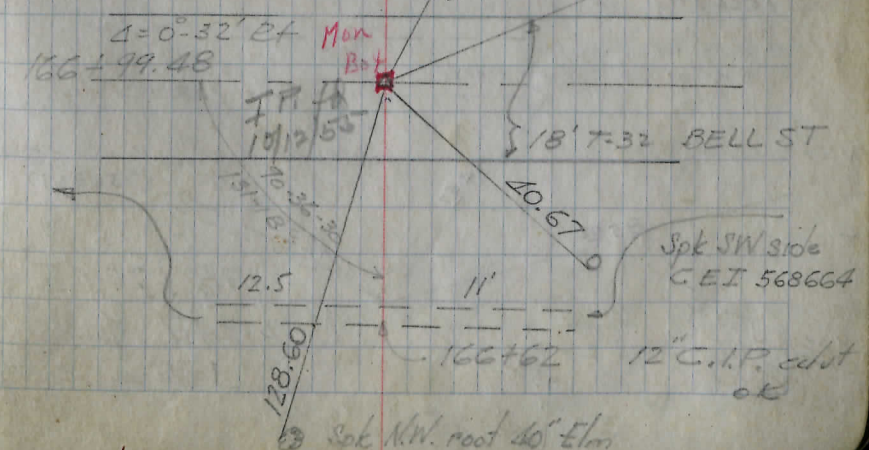 Δ = 0°-32' Lt
Mon
Box
166+99.48
I.P. fd
10/12/55
18' T-32 BELL ST
40.67
Spk SW side
CEI 568664
12.5
11'
166+62
12" C.I.P. culvt
OK
128.60
Spk N.W. root 40" Elm